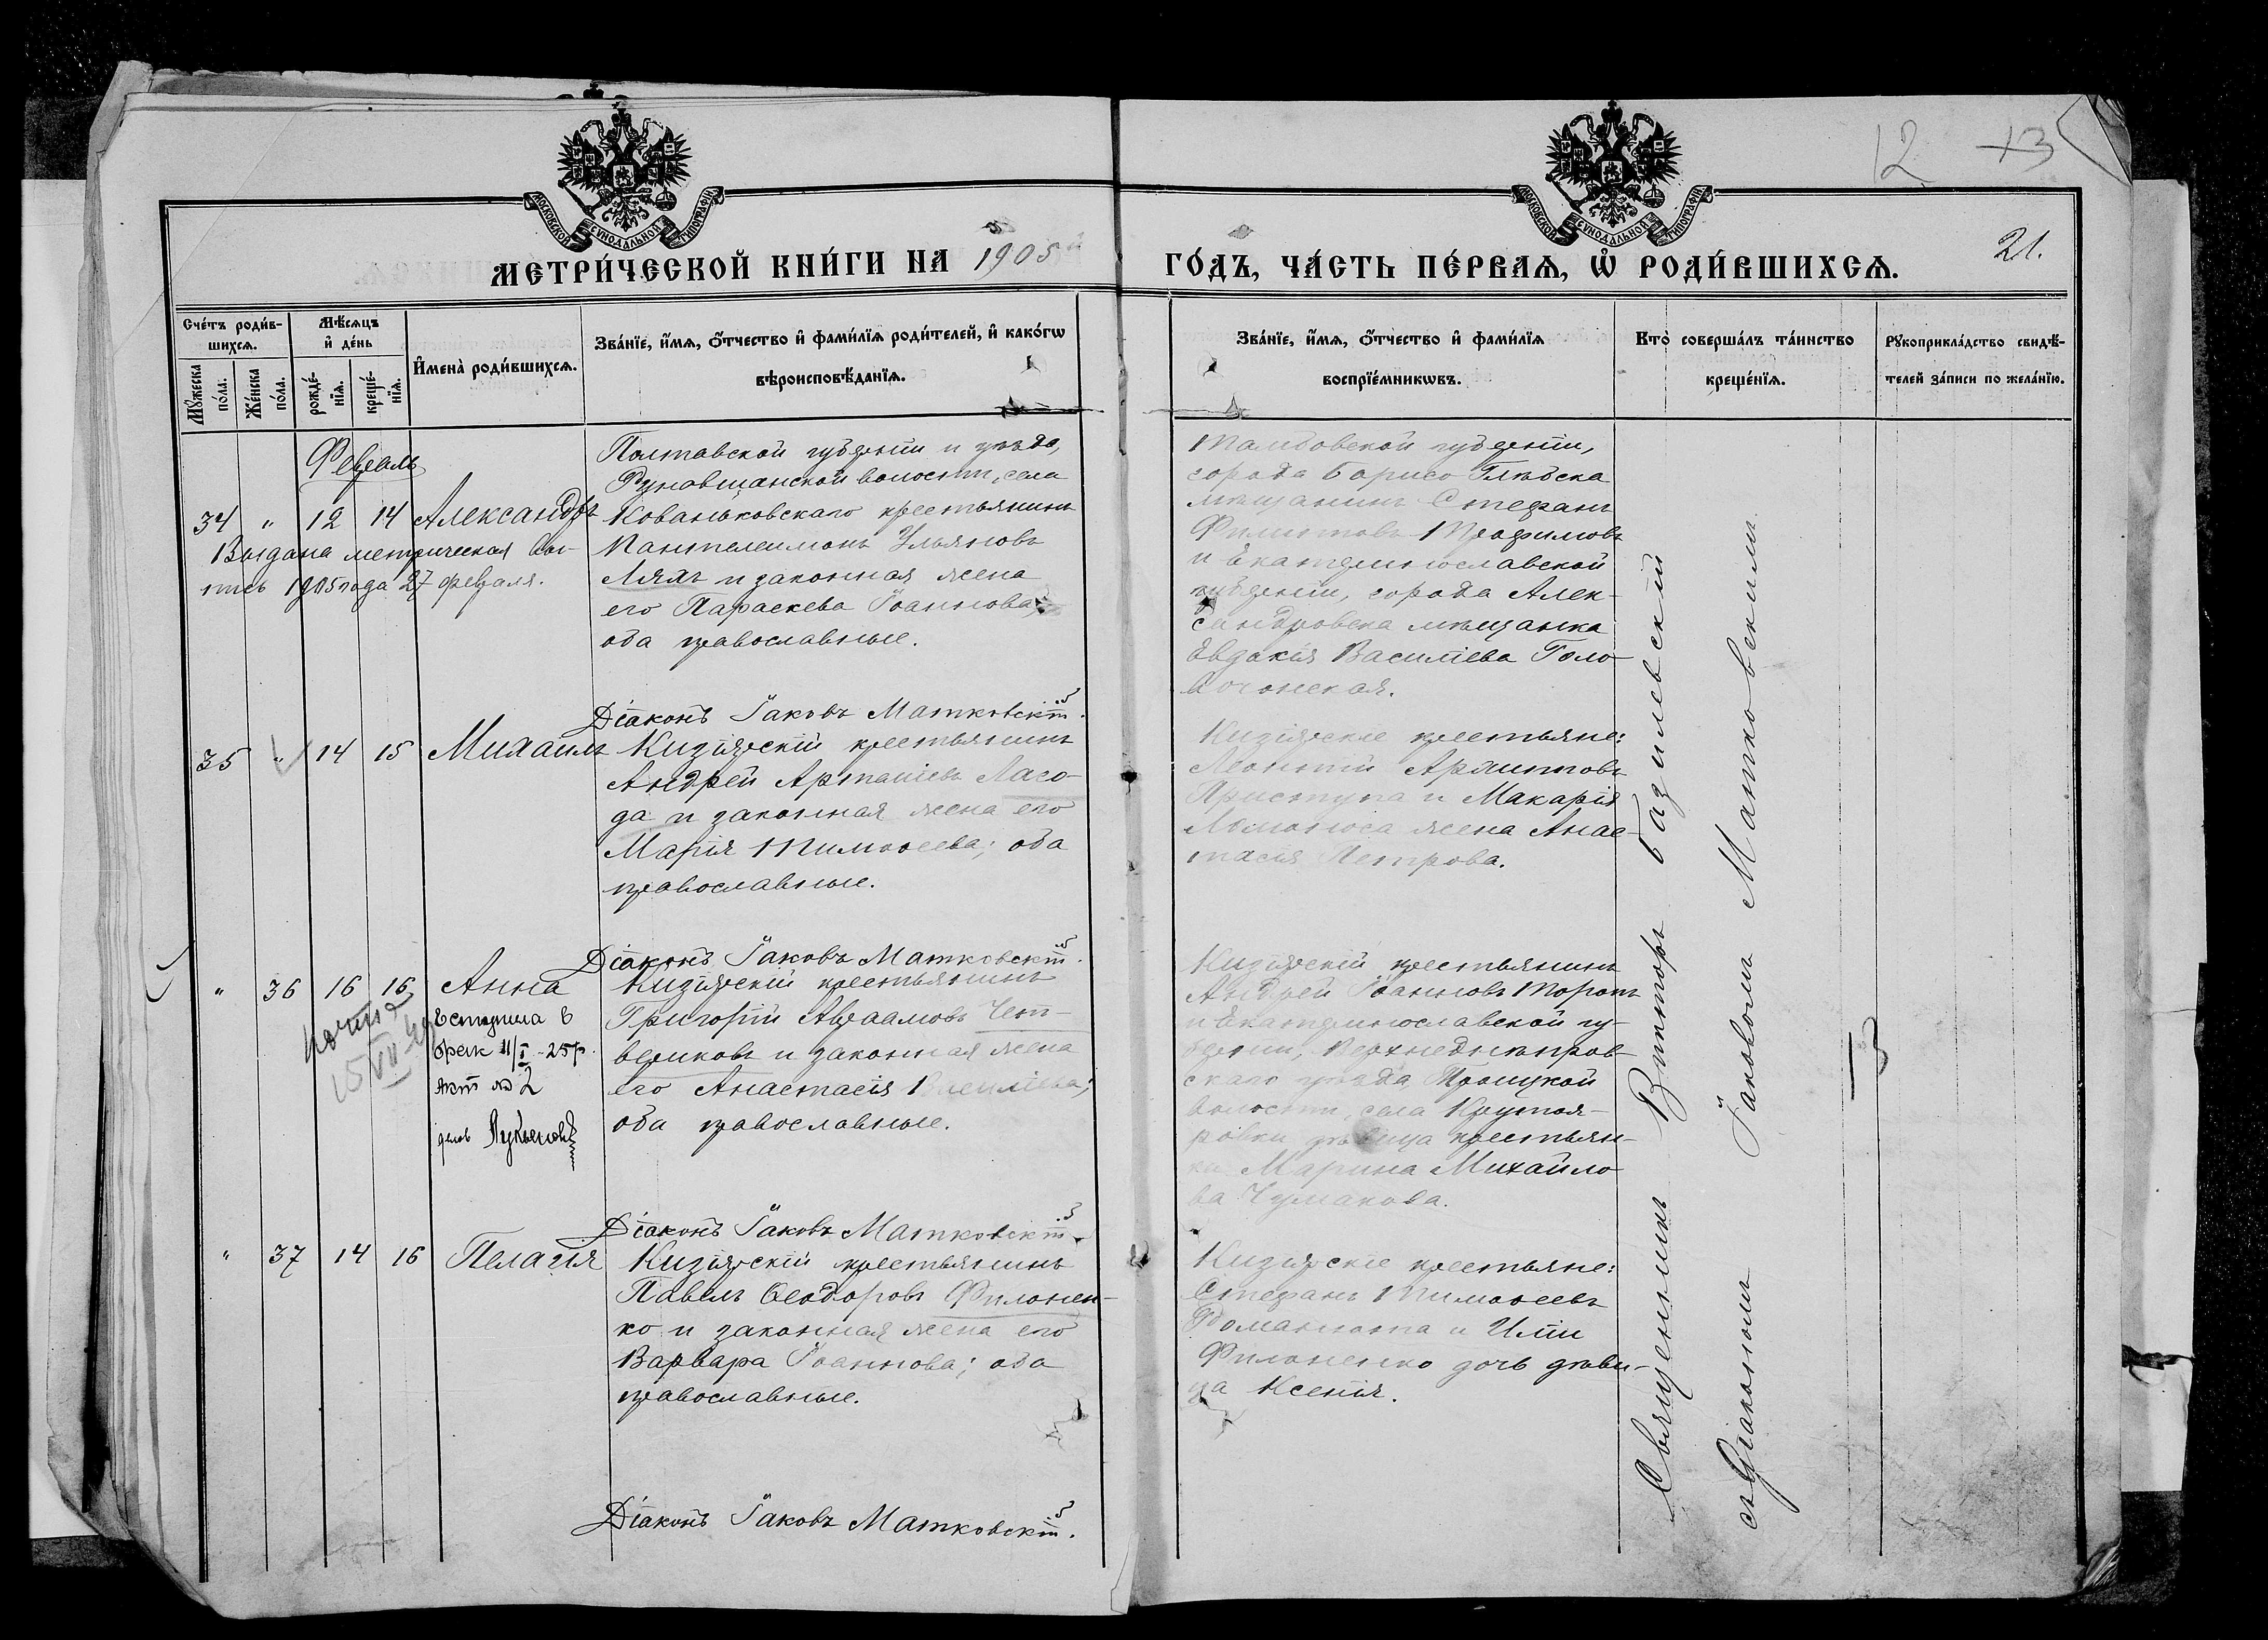 12
13
21.
МОСКОВСКОЙ СѴНОДАЛЬНОЙ ТИПОГРАФІИ
МОСКОВСКОЙ СѴНОДАЛЬНОЙ ТИПОГРАФІИ
МЕТРИ́ЧЕСКОЙ КНИ́ГИ НА 1905
ГО́ДЪ, ЧА́СТЬ ПЕ́РВАѦ, Ѡ҆ РОДИ́ВШИХСѦ.
Сче́тъ роди́в-
шихсѧ.
Мꙋ́жеска
по́ла.
Же́нска
по́ла.
Мѣ́сѧцъ
и҆ де́нь
рожде́-
нїѧ.
креще́-
нїѧ.
И҆мена̀ роди́вшихсѧ.
Зва́нїе, и҆́мѧ, ѻ҆́тчество и҆ фами́лїѧ роди́телей, и҆ како́гѡ
вѣроисповѣ́данїѧ.
Зва́нїе, и҆́мѧ, ѻ҆́тчество и҆ фами́лїѧ
воспрїе́мникѡвъ.
Кто̀ соверша́лъ та́инство
креще́нїѧ.
Рꙋкоприкла́дство свидѣ́-
телей за́писи по жела́нїю.
Февраль
34 " 12 14 Александръ
Выдана метрическая вы-
пись 1905 года 27 февраля.
Полтавской губерніи и уѣзда,
волости, села
Кованьковскаго крестьянинъ
Пантелеимонъ Ульяновъ
Ляхъ и законная жена
его Параскева Іоаннова;
оба православные.
Діаконъ Іаковъ Матковскій.
Тамбовской губерніи,
города Борисо Глѣбска
мѣщанинъ Стефанъ
Филиповъ Трофимовъ
и Екатеринославской
губерніи, города Алек-
сандровска мѣщанка
Евдокія Василіева Голо-
35 " 14 15 Михаилъ
Кизіярскій крестьянинъ
Андрей Ласо-
да и законная жена его
Марія Тимоѳеева; оба
православные.
Діаконъ Іаковъ Матковскій.
Кизіярскіе крестьяне:
Леонтій
Приступа и Макарія
Ломоноса жена Анас-
тасія Петрова.
" 36 16 16 Анна
Вступила в
брак 11/I - 25 р.
Акт № 2
15 VII
Кизіярскій крестьянинъ
Григорій Авраамовъ Чет-
вериковъ и законная жена
его Анастасія Василіева;
оба православные.
Діаконъ Іаковъ Матковскій.
Кизіярскій крестьянинъ
Андрей Іоанновъ
и Екатеринославской гу-
берніи, Верхнеднѣпров-
скаго уѣзда, Троицкой
волости, села Крутоя-
ровки дѣвица крестьян-
ка Марина Михайло-
ва Чумакова.
" 37 14 16 Пелагія
Кизіярскій крестьянинъ
Павелъ Ѳеодоровъ Филонен-
ко и законная жена его
Варвара Іоаннова; оба
православные.
Діаконъ Іаковъ Матковскій.
Кизіярскіе крестьяне:
Стефанъ Тимоѳеевъ
и Иліи
Филоненко дочь дѣви-
ца Ксенія.
Священникъ Викторъ Базилевскій
съ Діакономъ Іаковомъ Матковскимъ